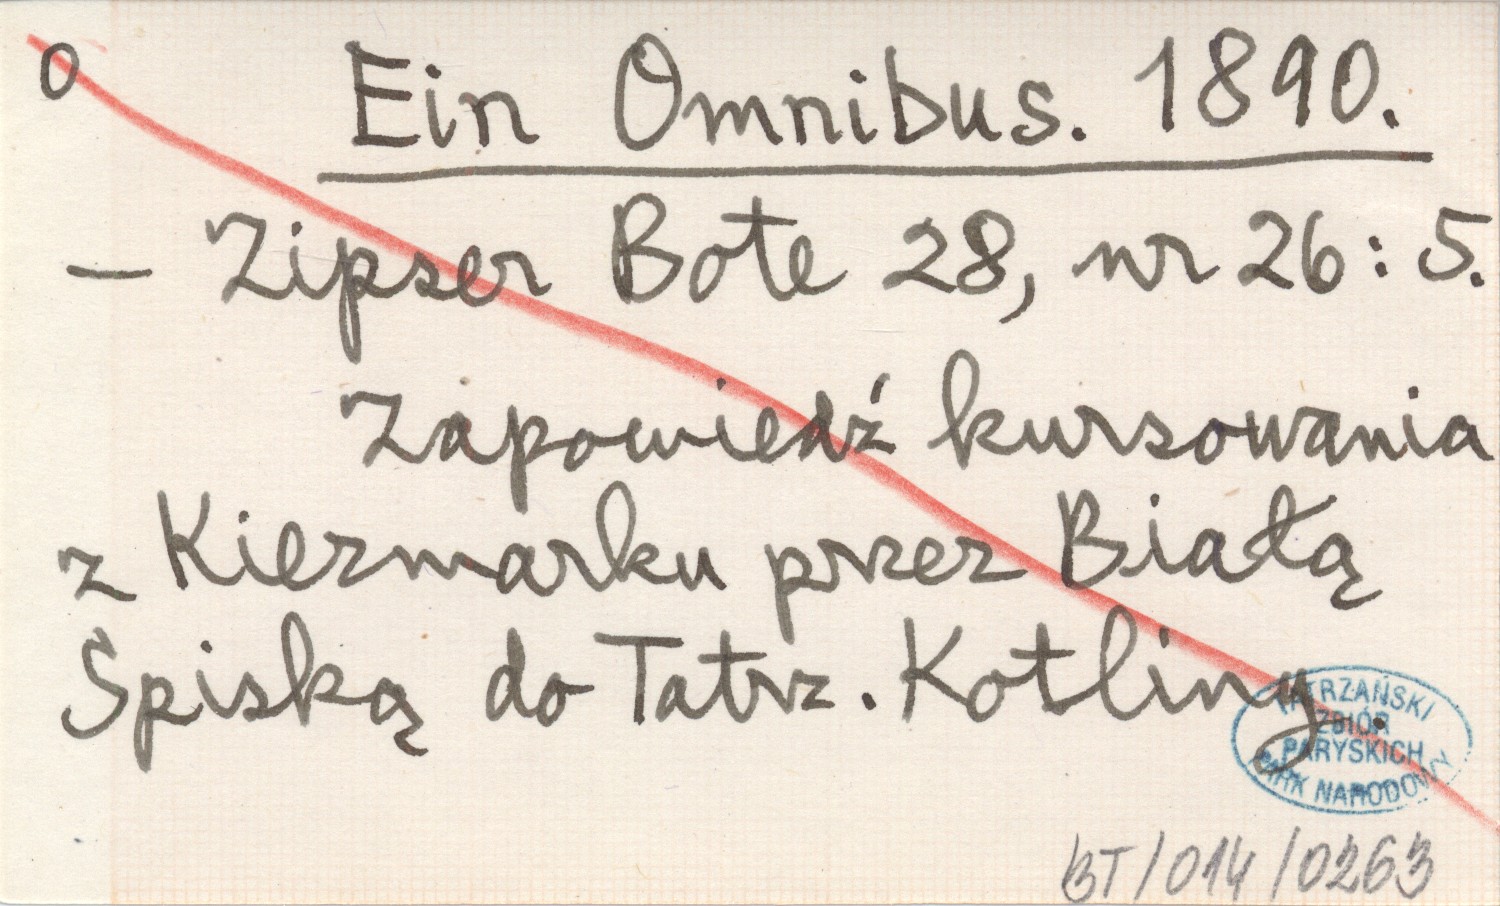 O
Ein Omnibus. 1890.
— Zipser Bote 28, nr 26: 5.
Zapowiedź kursowania
z Kiezmarku przez Białą
Spiską do Tatrz. Kotliny.
TATRZAŃSKI
ZBIÓR
PARYSKICH
PARK NARODOWY
BT/014/0263